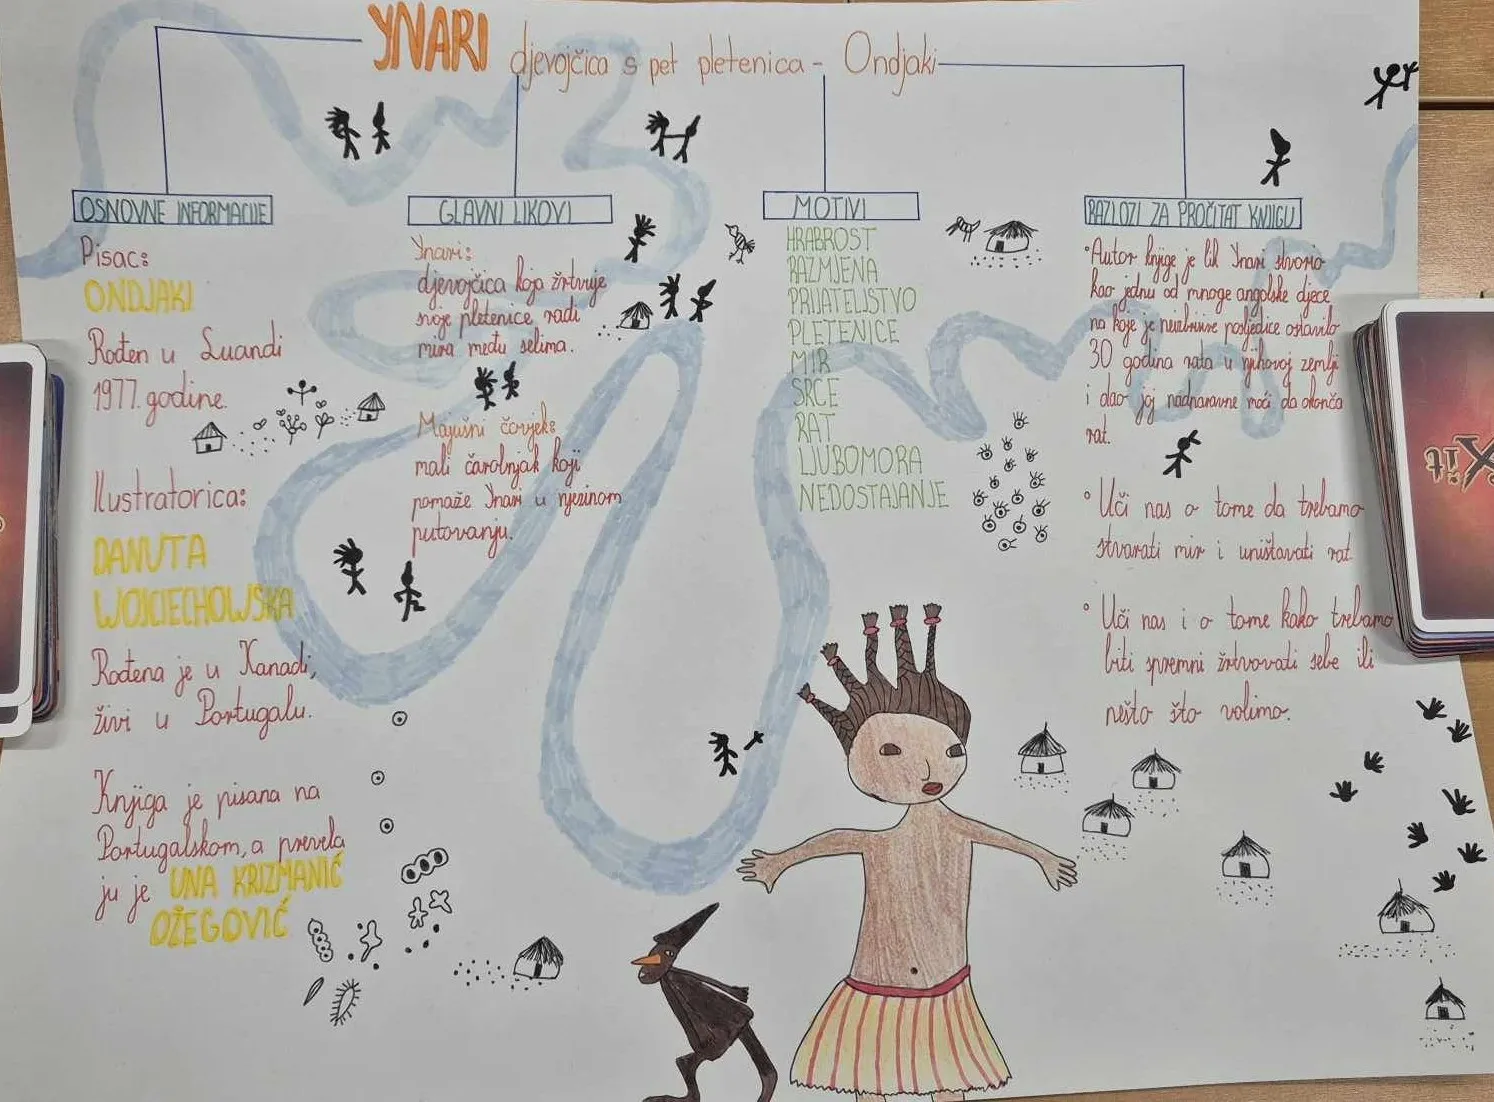 YNARI djevojčica s pet pletenica - Ondjaki
OSNOVNE INFORMACIJE
Pisac:
ONDJAKI
Rođen u Luandi
1977. godine.
Ilustratorica:
DANUTA
WOJCIECHOWSKA
Rođena je u Kanadi,
živi u Portugalu.
Knjiga je pisana na
Portugalskom, a prevela
ju je UNA KRIZMANIĆ
OŽEGOVIĆ
GLAVNI LIKOVI
Ynari:
djevojčica koja žrtvuje
svoje pletenice radi
mira među selima.
Majušni čovjek:
mali čarobnjak koji
pomaže Ynari u njezinom
putovanju.
MOTIVI
HRABROST
RAZMJENA
PRIJATELJSTVO
PLETENICE
MIR
SRCE
RAT
LJUBOMORA
NEDOSTAJANJE
RAZLOZI ZA PROČITAT KNJIGU
°Autor knjige je lik Ynari stvorio
kao jednu od mnoge angolske djece
na koje je posljedice ostavilo
30 godina rata u njihovoj zemlji
i dao joj nadnaravne moći da okonča
rat.
°Uči nas o tome da trebamo
stvarati mir i uništavati rat.
°Uči nas i o tome kako trebamo
biti spremni žrtvovati sebe ili
nešto što volimo.
Xit